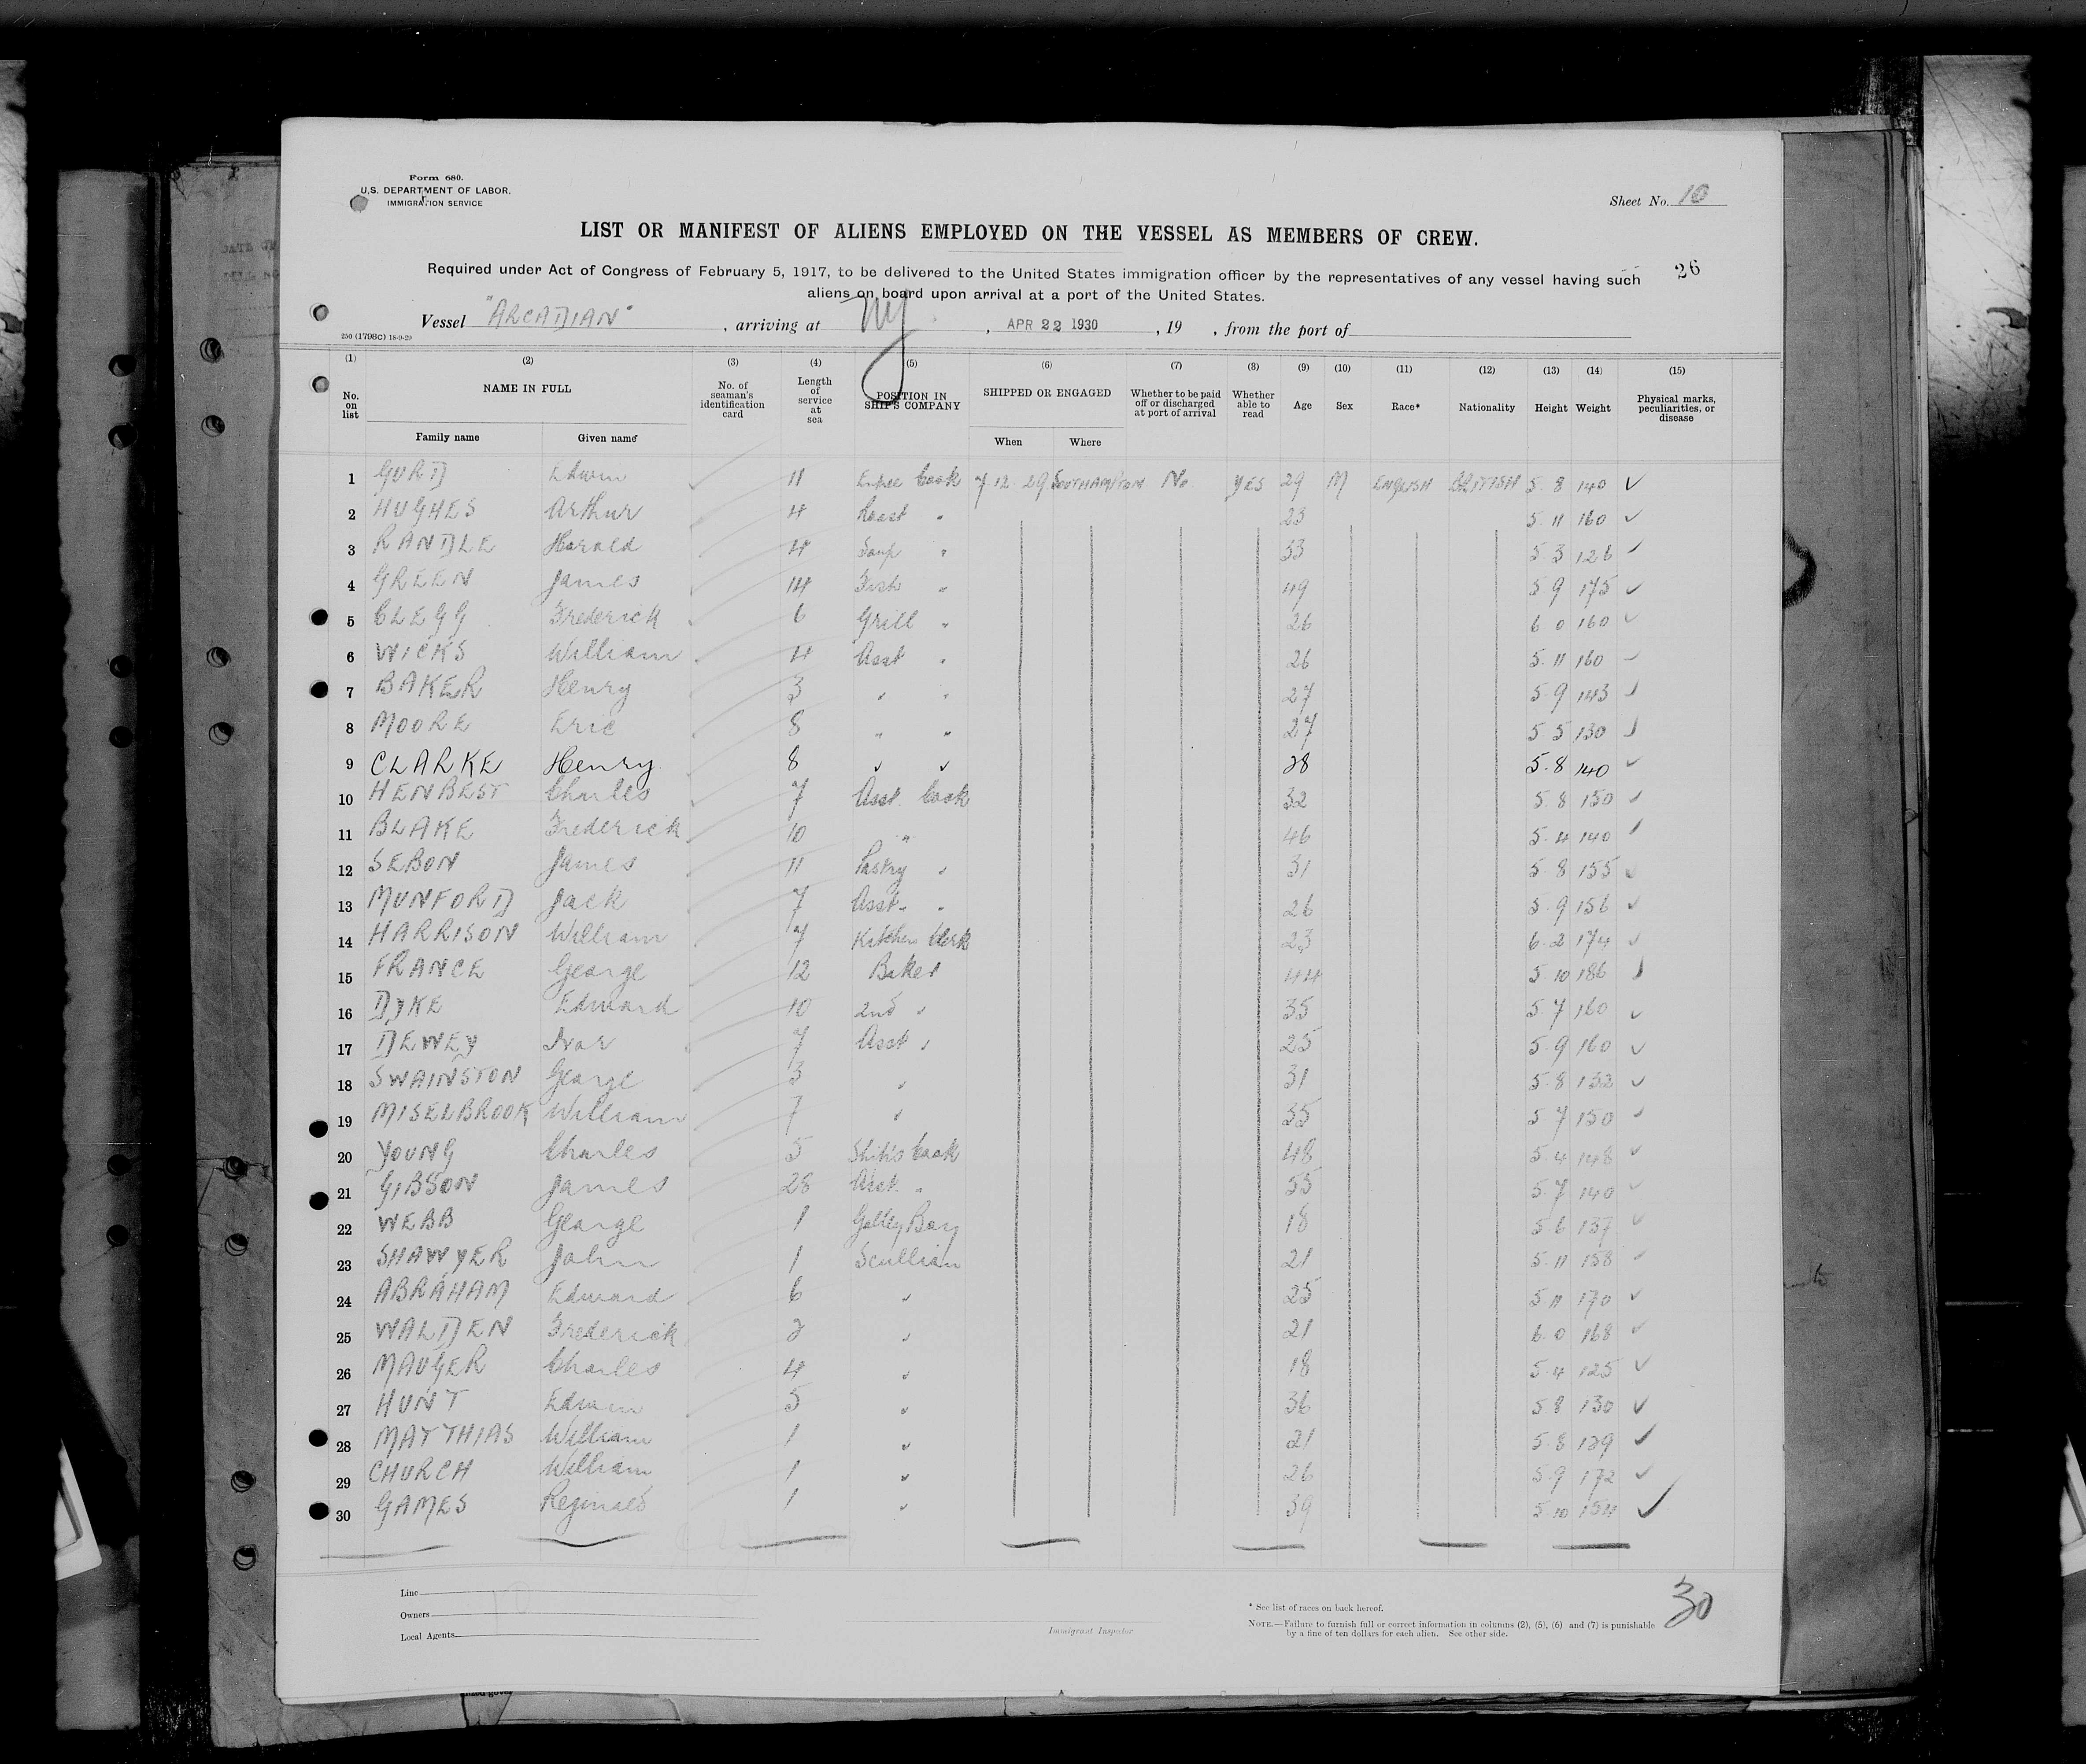 Form 680.
U.S. DEPARTMENT OF LABOR.
IMMIGRATION SERVICE
Sheet No. 10
LIST OR MANIFEST OF ALIENS EMPLOYED ON THE VESSEL AS MEMBERS OF CREW.
26
Required under Act of Congress of February 5, 1917, to be delivered to the United States immigration officer by the representatives of any vessel having such
aliens on board upon arrival at a port of the United States.
Vessel "ARCADIAN", arriving at NY, APR 22 1930, 19 , from the port of
250 (1798C) 18-9-29
(1) (2) (3) (4) (5) (6) (7) (8) (9) (10) (11) (12) (13) (14) (15)
No. on list NAME IN FULL Family name Given name No. of seaman's identification card Length of service at sea POSITION IN SHIP'S COMPANY SHIPPED OR ENGAGED When Where Whether to be paid off or discharged at port of arrival Whether able to read Age Sex Race* Nationality Height Weight Physical marks, peculiarities, or disease
1 GURD Edwin 11 Entree Cook 7 12 29 SOUTHAMPTON No YES 29 M ENGLISH BRITISH 5. 8 140 ✓
2 HUGHES Arthur 4 Roast " 23 5 11 160 ✓
3 RANDLE Harold 4 Soup " 33 5 3 126 ✓
4 GREEN James 14 Fish " 49 5 9 175 ✓
5 CLEGG Frederick 6 Grill " 26 6 0 160 ✓
6 WICKS William 4 Asst " 26 5. 11 160 ✓
7 BAKER Henry 3 " " 27 5 9 143 ✓
8 MOORE Eric 8 " " 27 5 5 130 ✓
9 CLARKE Henry 8 " " 28 5. 8 140 ✓
10 HENBEST Charles 7 Asst. Cook 32 5. 8 150 ✓
11 BLAKE Frederick 10 " 46 5. 4 140 ✓
12 SEBON James 11 Pastry " 31 5 8 155 ✓
13 MUNFORD Jack 7 Asst " " 26 5. 9 156 ✓
14 HARRISON William 7 Kitchen Clerk 23 6. 2 174 ✓
15 FRANCE George 12 Baker 44 5 10 186 ✓
16 DYKE Edward 10 2nd " 35 5. 7 160 ✓
17 DEWEY Ivor 7 Asst " 25 5. 9 160 ✓
18 SWAINSTON George 3 " 31 5. 8 132 ✓
19 MISELBROOK William 7 " 35 5 7 150 ✓
20 YOUNG Charles 5 Ship's Cook 48 5. 4 148 ✓
21 GIBSON James 28 Asst. " 55 5. 7 140 ✓
22 WEBB George 1 Galley Boy 18 5. 6 137 ✓
23 SHAWYER John 1 Scullion 21 5. 11 158 ✓
24 ABRAHAM Edward 6 " 25 5 11 170 ✓
25 WALDEN Frederick 2 " 21 6. 0 168 ✓
26 MAUGER Charles 4 " 18 5. 4 125 ✓
27 HUNT Edwin 5 " 36 5 8 130 ✓
28 MATTHIAS William 1 " 21 5. 8 139 ✓
29 CHURCH William 1 " 26 5. 9 172 ✓
30 GAMES Reginald 1 " 39 5 10 154 ✓
Line
Owners
Local Agents
Immigrant Inspector
* See list of races on back hereof.
NOTE.—Failure to furnish full or correct information in columns (2), (5), (6) and (7) is punishable
by a fine of ten dollars for each alien. See other side.
30